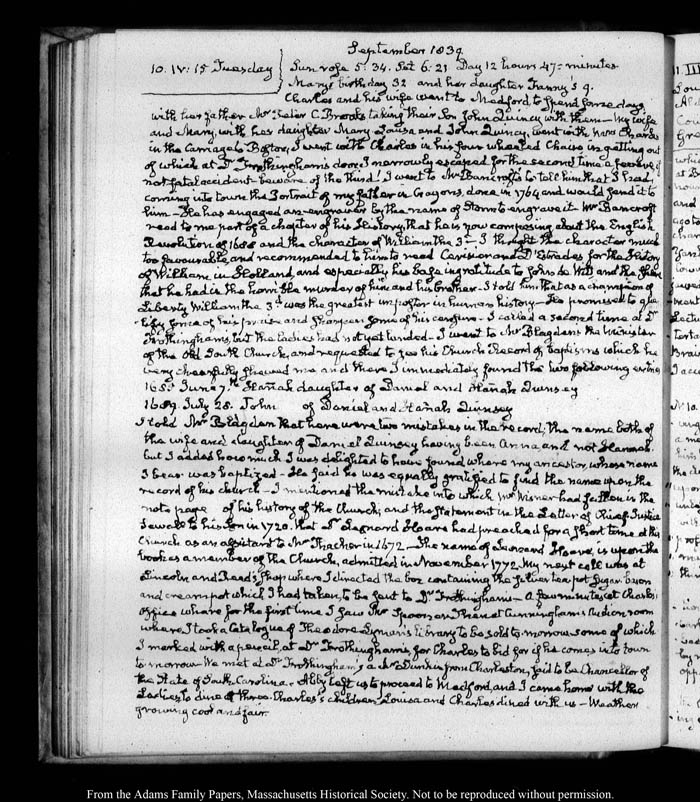 September 1839.
10. IV: 15 Tuesday
Sun rose 5: 34. Set 6: 21 Day 12 hours 47 minutes
Mary's birthday 32 and her daughter Fanny's 9.
Charles and his wife went to Medford to spend some days
with her father Mr Peter C Brooks taking their Son John Quincy with them — My wife
and Mary, with her daughter Mary Louisa and John Quincy, went with Mrs Charles
in the Carriage to Boston, I went with Charles in his four wheeled Chaise in getting out
of which at Dr Frothingham's door I narrowly escaped for the second time a severe if
not fatal accident - beware of the third! I went to Mr Bancroft's to tell him that I had
coming into town the Portrait of my father in Crayons, done in 1764 and would send it to
him — He has engaged an engraver by the name of Storm to engrave it — Mr Bancroft
read to me part of a chapter of his History, that he is now composing about the English
Revolution of 1688 and the character of William the 3d — I thought the character much
too favourable, and recommended to him to read Cerisier and D'Estrades for the History
of William in Holland, and especially his base ingratitude to John de Witt and the share
that he had in the horrible murder of him and his brother - I told him that as a champion of
Liberty William the 3d was the greatest impostor in human history — He promised to qua
lify some of his praise and sharpen some of his censure - I called a second time at Dr
Frothingham's, but the Ladies had not yet landed — I went to Mr Blagden the Minister
of the Old South Church, and requested to see his Church Record of baptisms which he
very cheerfully shewed me and there I immediately found the two following entries
June 7. Hañah daughter of Daniel and Hañah Quinsey
1689. July 28. John of Daniel and Hañah Quinsey
I told Mr Blagden that there were two mistakes in the record; the name both of
the wife and daughter of Daniel Quinsey having been Anna and not Hannah.
but I added how much I was delighted to have found where my ancestor, whose name
I bear was baptized — He said he was equally gratified to find the name upon the
record of his church — I mentioned the mistake into which Mr Wisner had fallen in the
note page of his history of the Church, and the statement in the Letter of Chief Justice
Sewall to his Son in 1720. that Dr Leonard Hoare had preached for a short time at this
Church as an assistant to Mr Thacher in 1672 — The name of Leonard Hoare, is upon the
book as a member of the Church, admitted in November 1772. My next call was at
Lincoln and Reed's Shop where I directed the box containing the silver tea pot sugar bason
and cream pot which I had taken, to be sent to Dr Frothingham's — A few minutes at Charles's
office where for the first time I saw Mr Spooner Thence at Cunningham's Auction room
where I took a Catalogue of Theodore Lyman's Library to be sold to-morrow some of which
I marked with a pencil, at Dr Frothingham's for Charles to bid for if he comes into town
to-morrow. We met at Dr Frothingham's a Mr Dunkin from Charleston, said to be Chancellor of
the State of South Carolina. Abby left us to proceed to Medford, and I came home with the
Ladies to dine at three. Charles's children Louisa and Charles dined with us — Weather
growing cool and fair.
From the Adams Family Papers, Massachusetts Historical Society. Not to be reproduced without permission.